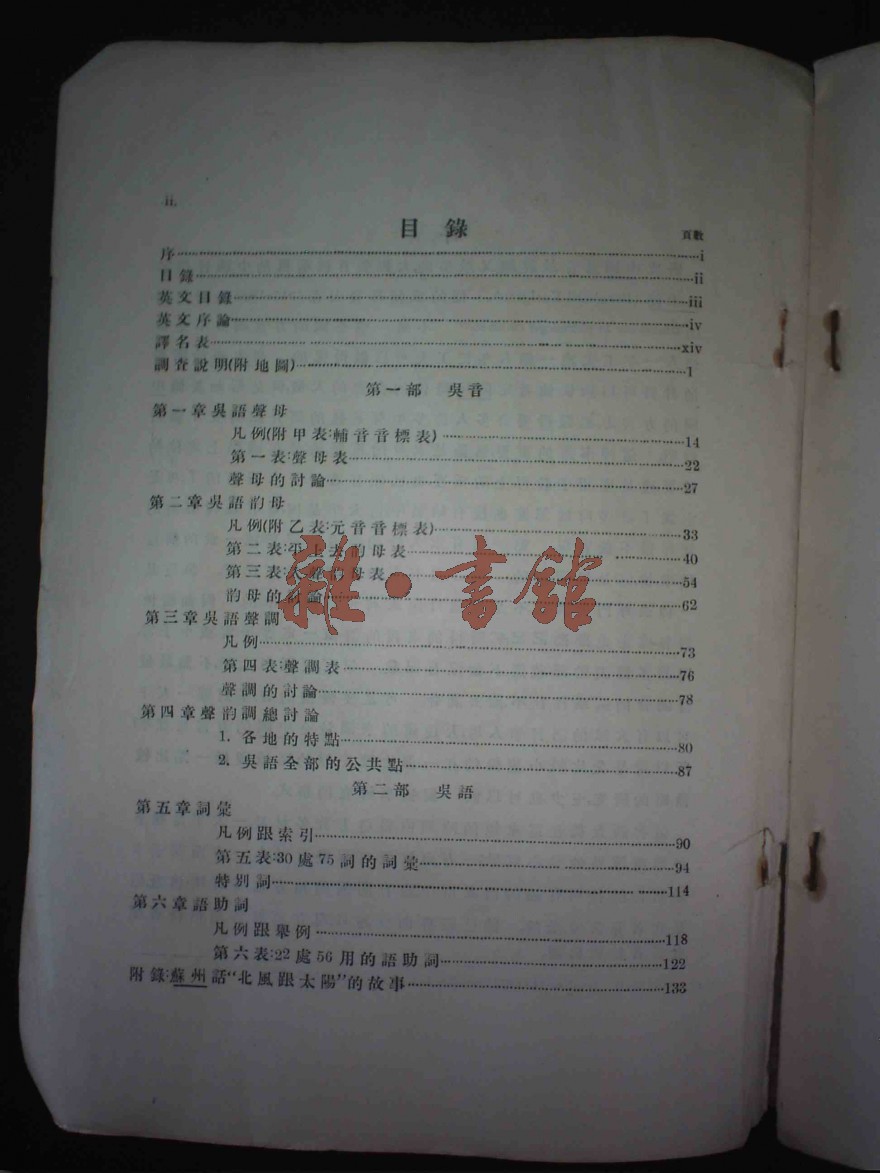 ii.
目錄
頁數
序……i
目錄……ii
英文目錄……iii
英文序論……iv
譯名表……xiv
調查說明(附地圖)……1
第一部 吳音
第一章吳語聲母
凡例(附甲表:輔音音標表)……14
第一表:聲母表……22
聲母的討論……27
第二章吳語韵母
凡例(附乙表:元音音標表)……33
第二表:平上去韵母表……40
第三表:入聲韵母表……54
韵母的討論……62
雜·書館
第三章吳語聲調
凡例……73
第四表:聲調表……76
聲調的討論……78
第四章聲韵調總討論
1. 各地的特點……80
2. 吳語全部的公共點……87
第二部 吳語
第五章詞彙
凡例跟索引……90
第五表:30處75詞的詞彙……94
特別詞……114
第六章語助詞
凡例跟舉例……118
第六表:22處56用的語助詞……122
附錄:蘇州話“北風跟太陽”的故事……133